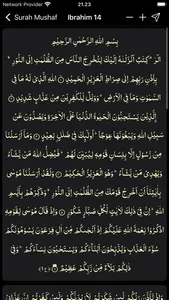 Network Provider 21.23
Surah Mushaf Ibrahim 14
بِسْمِ اللّٰهِ الرَّحْمٰنِ الرَّحِيْمِ
الۤرٰ ۗ كِتٰبٌ اَنْزَلْنٰهُ اِلَيْكَ لِتُخْرِجَ النَّاسَ مِنَ الظُّلُمٰتِ اِلَى النُّوْرِ ەۙ
بِاِذْنِ رَبِّهِمْ اِلٰى صِرَاطِ الْعَزِيْزِ الْحَمِيْدِۙ ۝١ اللّٰهِ الَّذِيْ لَهٗ مَا فِى
السَّمٰوٰتِ وَمَا فِى الْاَرْضِۗ وَوَيْلٌ لِّلْكٰفِرِيْنَ مِنْ عَذَابٍ شَدِيْدٍۙ ۝٢
الَّذِيْنَ يَسْتَحِبُّوْنَ الْحَيٰوةَ الدُّنْيَا عَلَى الْاٰخِرَةِ وَيَصُدُّوْنَ عَنْ
سَبِيْلِ اللّٰهِ وَيَبْغُوْنَهَا عِوَجًاۗ اُولٰۤىِٕكَ فِيْ ضَلٰلٍۢ بَعِيْدٍ ۝٣ وَمَآ اَرْسَلْنَا
مِنْ رَّسُوْلٍ اِلَّا بِلِسَانِ قَوْمِهٖ لِيُبَيِّنَ لَهُمْۗ فَيُضِلُّ اللّٰهُ مَنْ يَّشَاۤءُ
وَيَهْدِيْ مَنْ يَّشَاۤءُۗ وَهُوَ الْعَزِيْزُ الْحَكِيْمُ ۝٤ وَلَقَدْ اَرْسَلْنَا مُوْسٰى
بِاٰيٰتِنَآ اَنْ اَخْرِجْ قَوْمَكَ مِنَ الظُّلُمٰتِ اِلَى النُّوْرِ ەۙ وَذَكِّرْهُمْ بِاَيّٰىمِ
اللّٰهِۗ اِنَّ فِيْ ذٰلِكَ لَاٰيٰتٍ لِّكُلِّ صَبَّارٍ شَكُوْرٍ ۝٥ وَاِذْ قَالَ مُوْسٰى لِقَوْمِهِ
اذْكُرُوْا نِعْمَةَ اللّٰهِ عَلَيْكُمْ اِذْ اَنْجٰىكُمْ مِّنْ اٰلِ فِرْعَوْنَ يَسُوْمُوْنَكُمْ
سُوْۤءَ الْعَذَابِ وَيُذَبِّحُوْنَ اَبْنَاۤءَكُمْ وَيَسْتَحْيُوْنَ نِسَاۤءَكُمْ ۗ وَفِيْ
ذٰلِكُمْ بَلَاۤءٌ مِّنْ رَّبِّكُمْ عَظِيْمٌ ۝٦